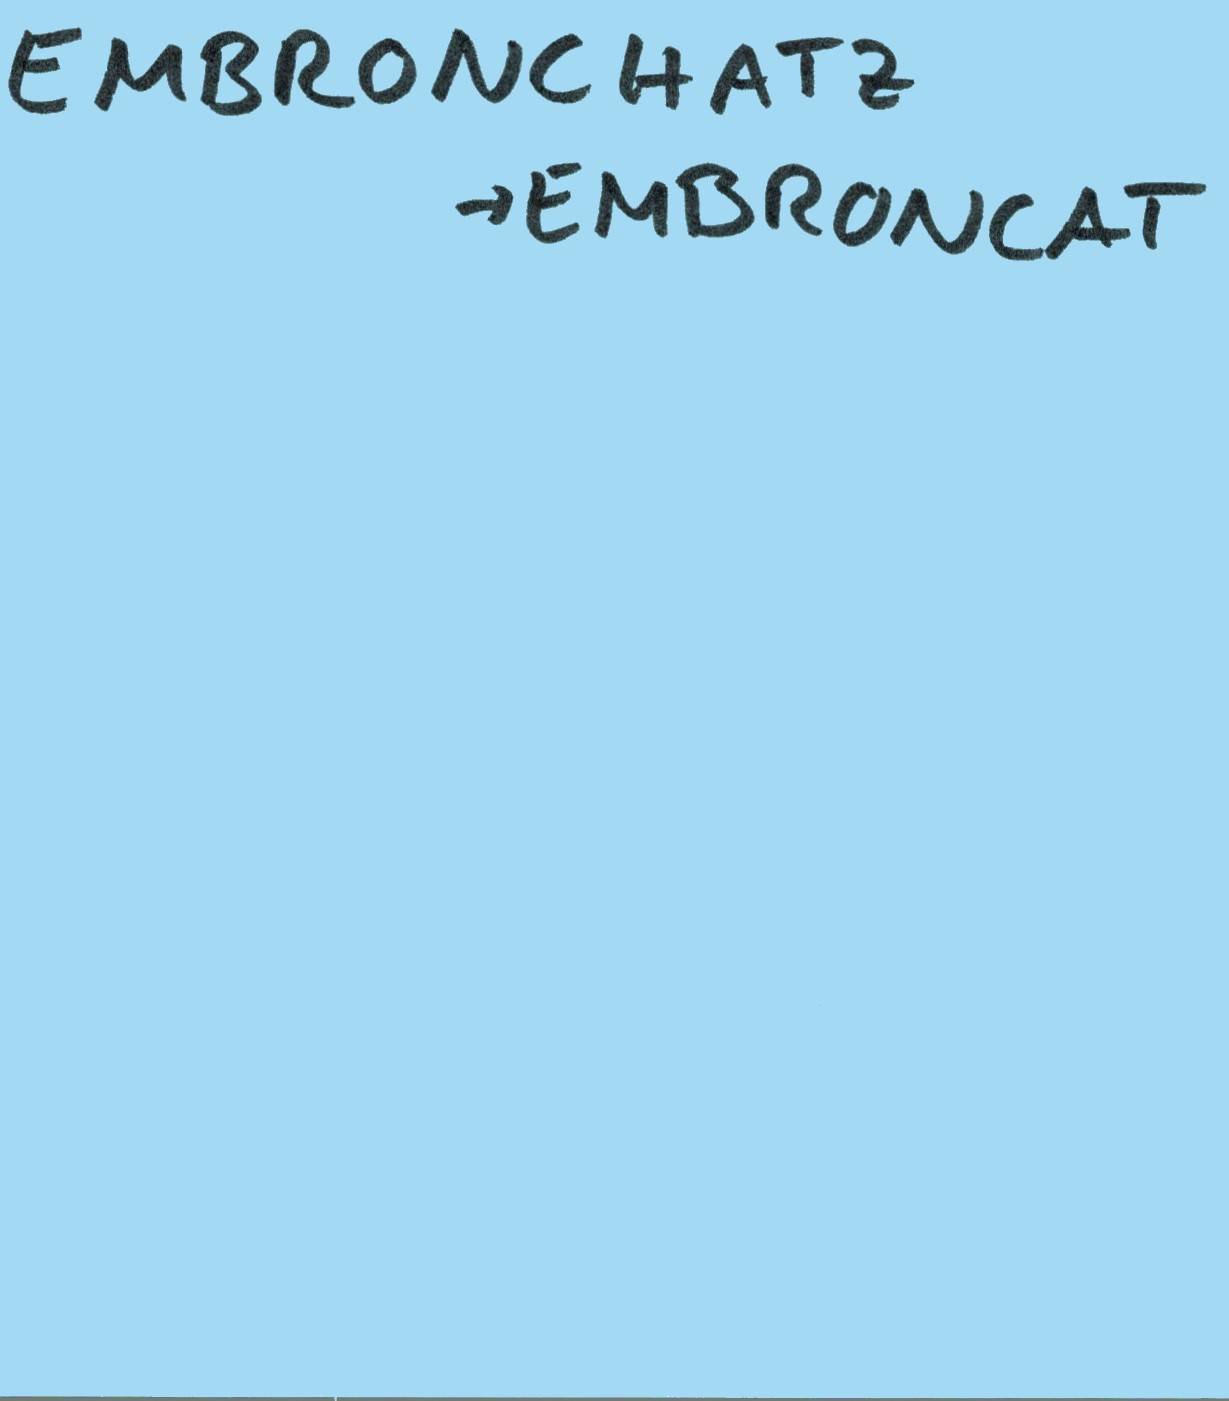 EMBRONCHATZ
→EMBRONCAT